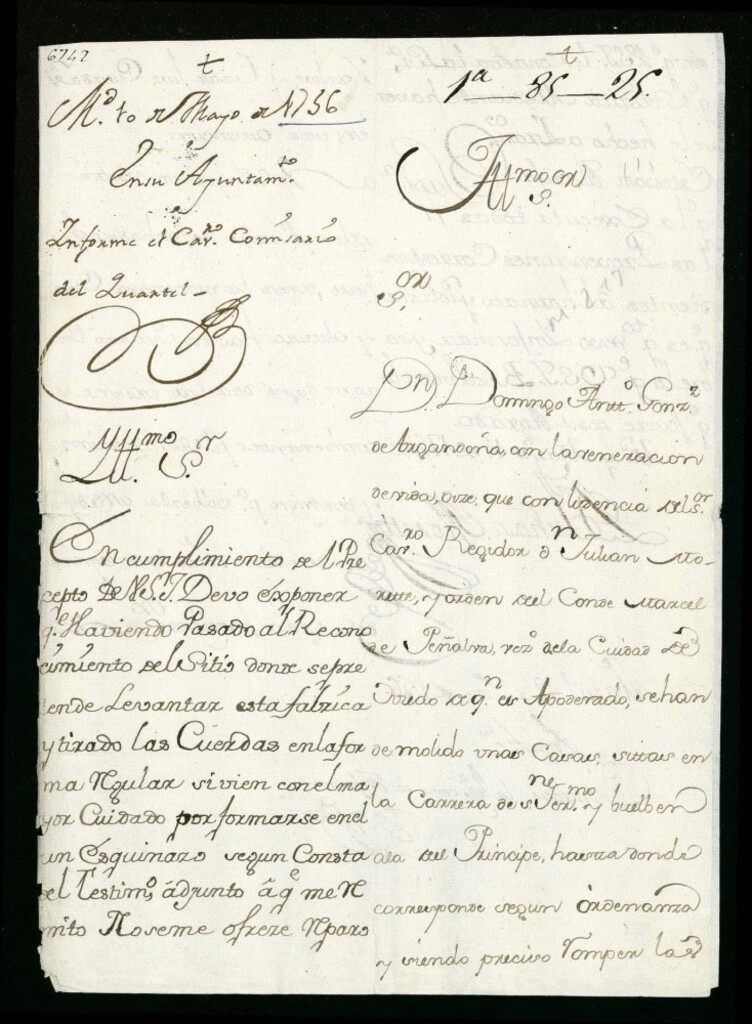 6742
M.d 10 de Mayo de 1756
En su Ayuntam.to
Informe el Cav.ro Comisario
del Quartel
Yll.mo S.r
En cumplimiento de el Pre
cepto de V.S.Y. Devo exponer
q.e Haviendo Pasado al Recono
cimiento del Sitio donde se pre
tende Levantar esta fabrica
y tirado las Cuerdas en la for
ma Regular si vien con el ma
yor Cuidado por formarse en el
un Esquinazo segun Consta
del Testim.o adjunto â q.e me Re
mito No se me ofreze Reparo
1.a 85-25.
Yll.mo S.or
S.or
D.n Domingo Ant.o Gonz.z
de Argandoña, con la veneracion
devida, dize, que con lizencia del S.or
Cav.ro Regidor D.n Julian Mo
rete, y orden del Conde Marcel
de Peñalva, vez.o de la Ciudad de
Oviedo de q.n es Apoderado, se han
demolido unas Casas, sittas en
la Carrera de S.n Jer.mo y buelben
a la del Principe, hasta donde
corresponde segun ordenanza
y siendo preciso romper las